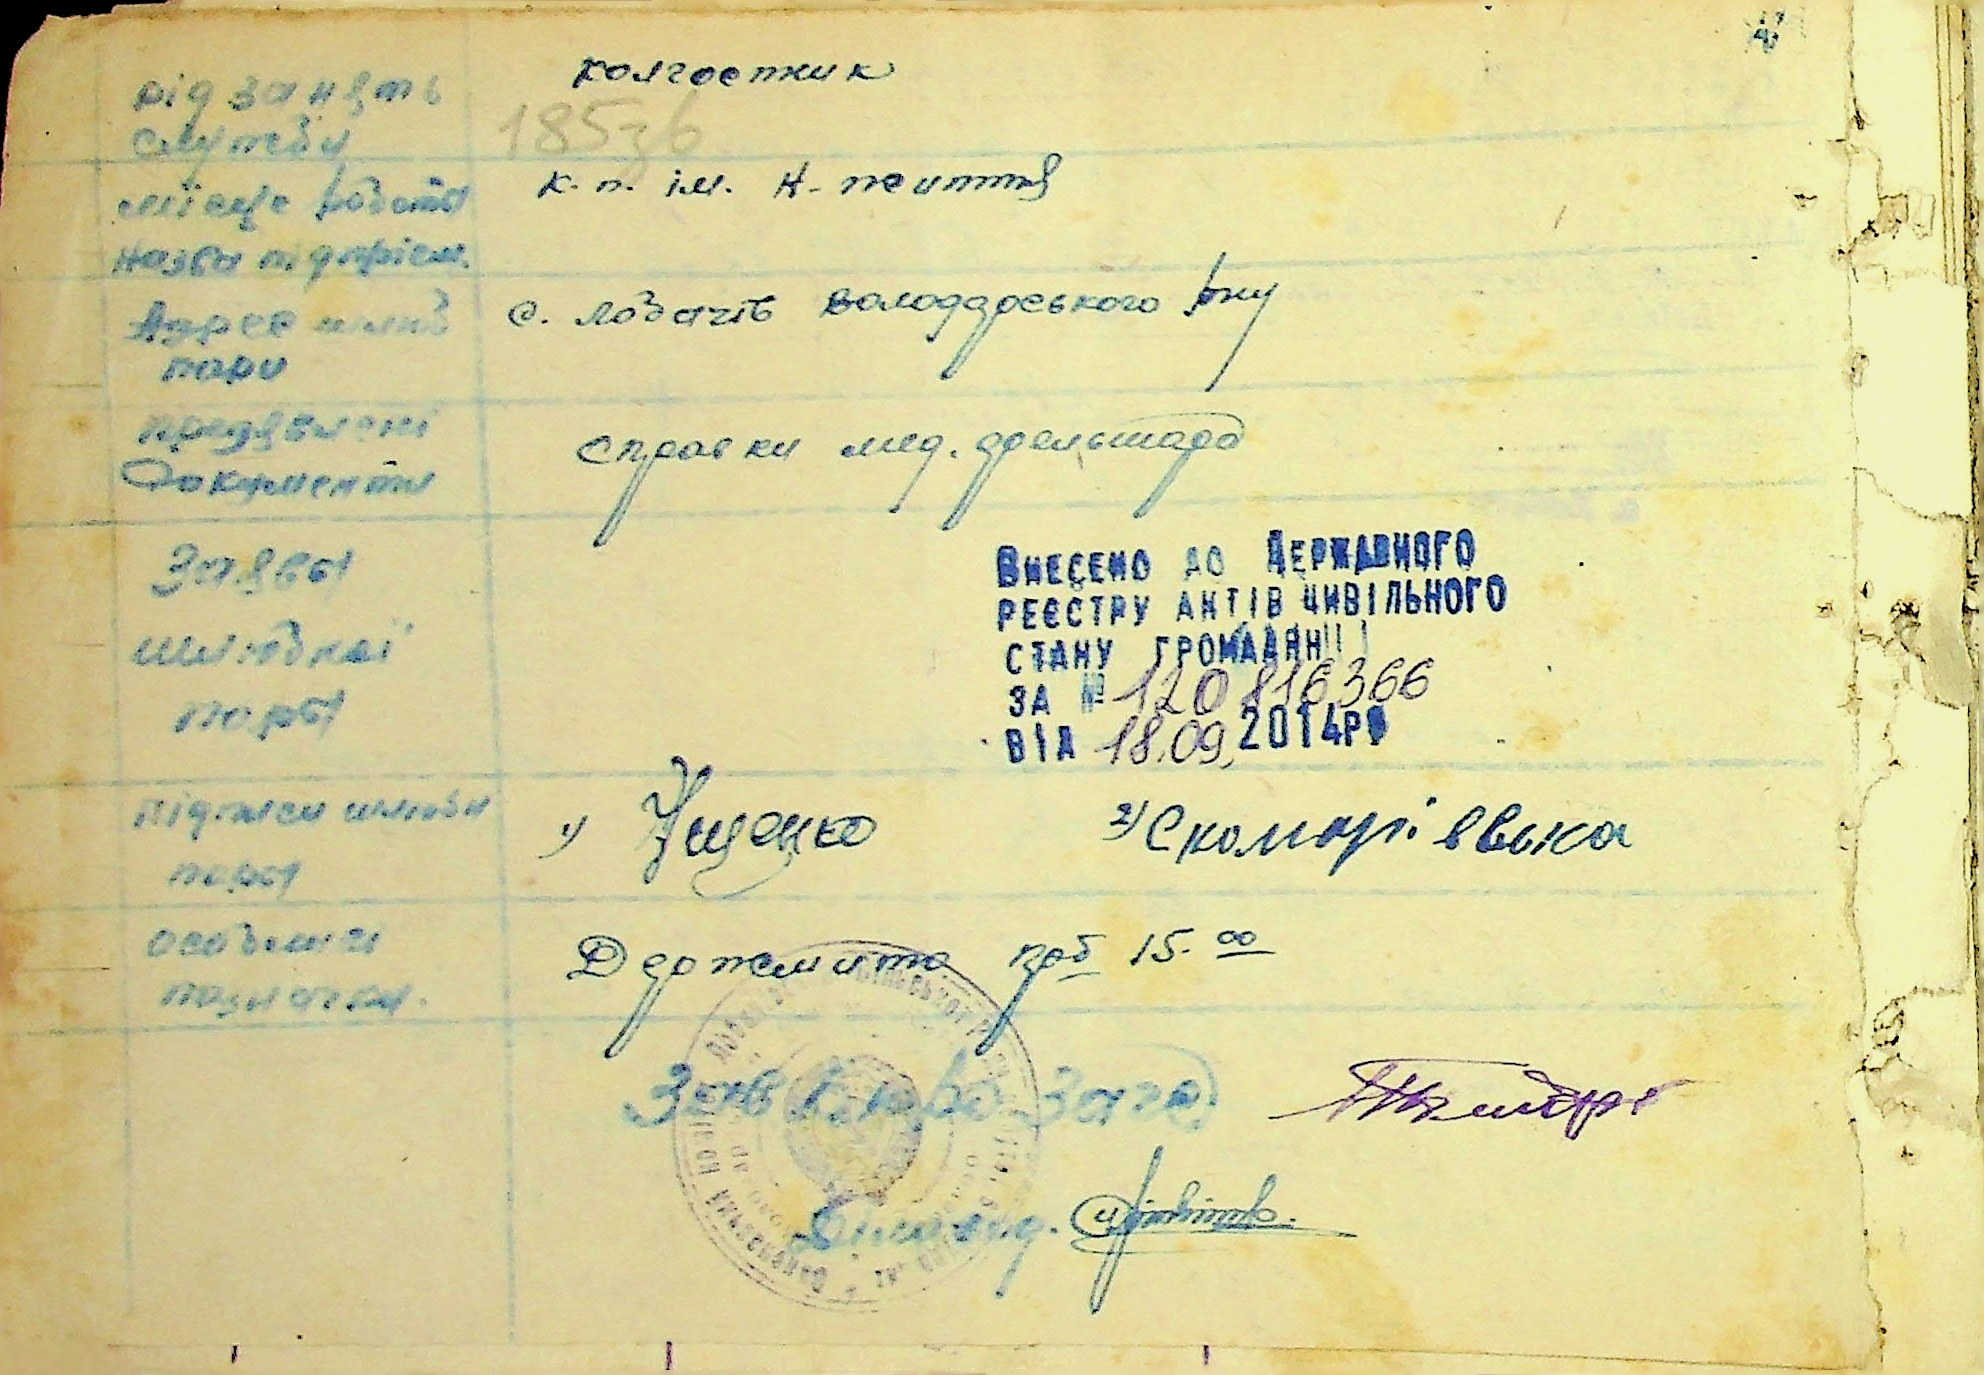 рід занять
служби
колгоспник
185зв
місце роботи
назва підприєм.
к-п. ім. Н-життя
Адрес шлюб
пари
с. Лобачів Володарського р-ну
пред'явлені
Документи
справки мед. фельшара
Заява
шлюбної
пари
Внесено до Державного
реєстру актів цивільного
стану громадян
за № 120816366
від 18.09. 2014р
Підписи шлюбн
пари
1) Ущенко
2) Скоморівська
особливі
позначки.
Держмито крб 15.00
Зав бюро Загс
Діловод.